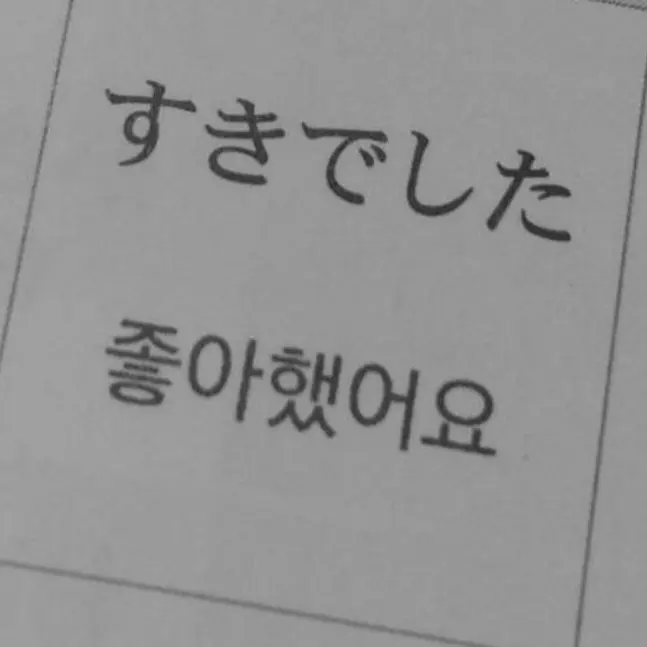 すきでした
좋아했어요